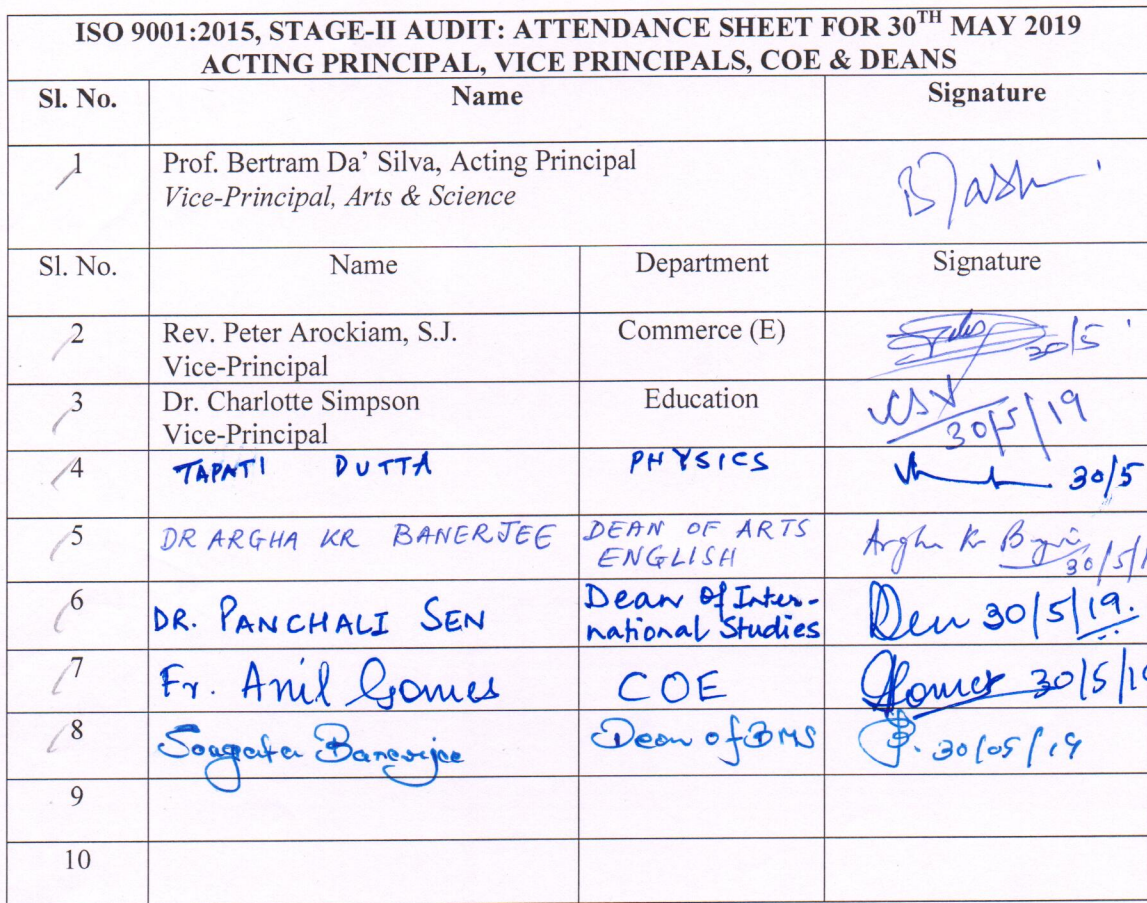 ISO 9001:2015, STAGE-II AUDIT: ATTENDANCE SHEET FOR 30TH MAY 2019
ACTING PRINCIPAL, VICE PRINCIPALS, COE & DEANS
Sl. No. Name Signature
1 Prof. Bertram Da' Silva, Acting Principal
Vice-Principal, Arts & Science
Sl. No. Name Department Signature
2 Rev. Peter Arockiam, S.J. Commerce (E) 30/5
Vice-Principal
3 Dr. Charlotte Simpson Education
Vice-Principal 30/5/19
4 TAPATI DUTTA PHYSICS 30/5
5 DR ARGHA KR BANERJEE DEAN OF ARTS Argha Kr
ENGLISH 30/5/1
6 DR. PANCHALI SEN Dean of Inter- 30/5/19.
national Studies
7 Fr. Anil Gomes COE Gomes 30/5/19
8 Sougata Banerjee Dean of BMS 30/05/19
9
10